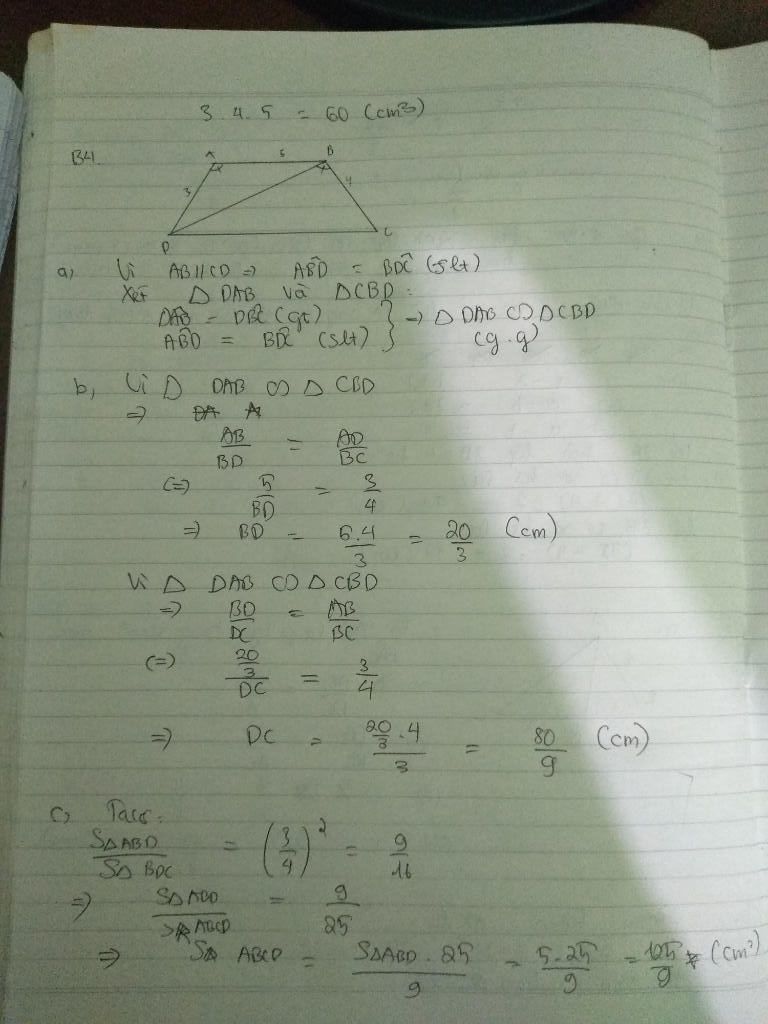 3.4.5 = 60 (cm3)
B4.
A 5 B
3 4
D C
a, Vì AB//CD => ABD̂ = BDĈ (slt)
Xét Δ DAB và ΔCBD:
DAB̂ = DBĈ (gt) } => Δ DAB ∽ ΔCBD
ABD̂ = BDĈ (slt) (g.g)
b, Vì Δ DAB ∽ Δ CBD
=>
AB/BD = AD/BC
<=> 5/BD = 3/4
=> BD = 5.4/3 = 20/3 (cm)
Vì Δ DAB ∽ ΔCBD
=> BD/DC = AB/BC
<=> 20/3/DC = 3/4
=> DC = 20/3.4/3 = 80/9 (cm)
c, Ta có:
SΔABD/SΔBDC = (3/4)2 = 9/16
=> SΔABD/SABCD = 9/25
=> S ABCD = SΔABD.25/9 = 5.25/9 = 125/9 (cm2)